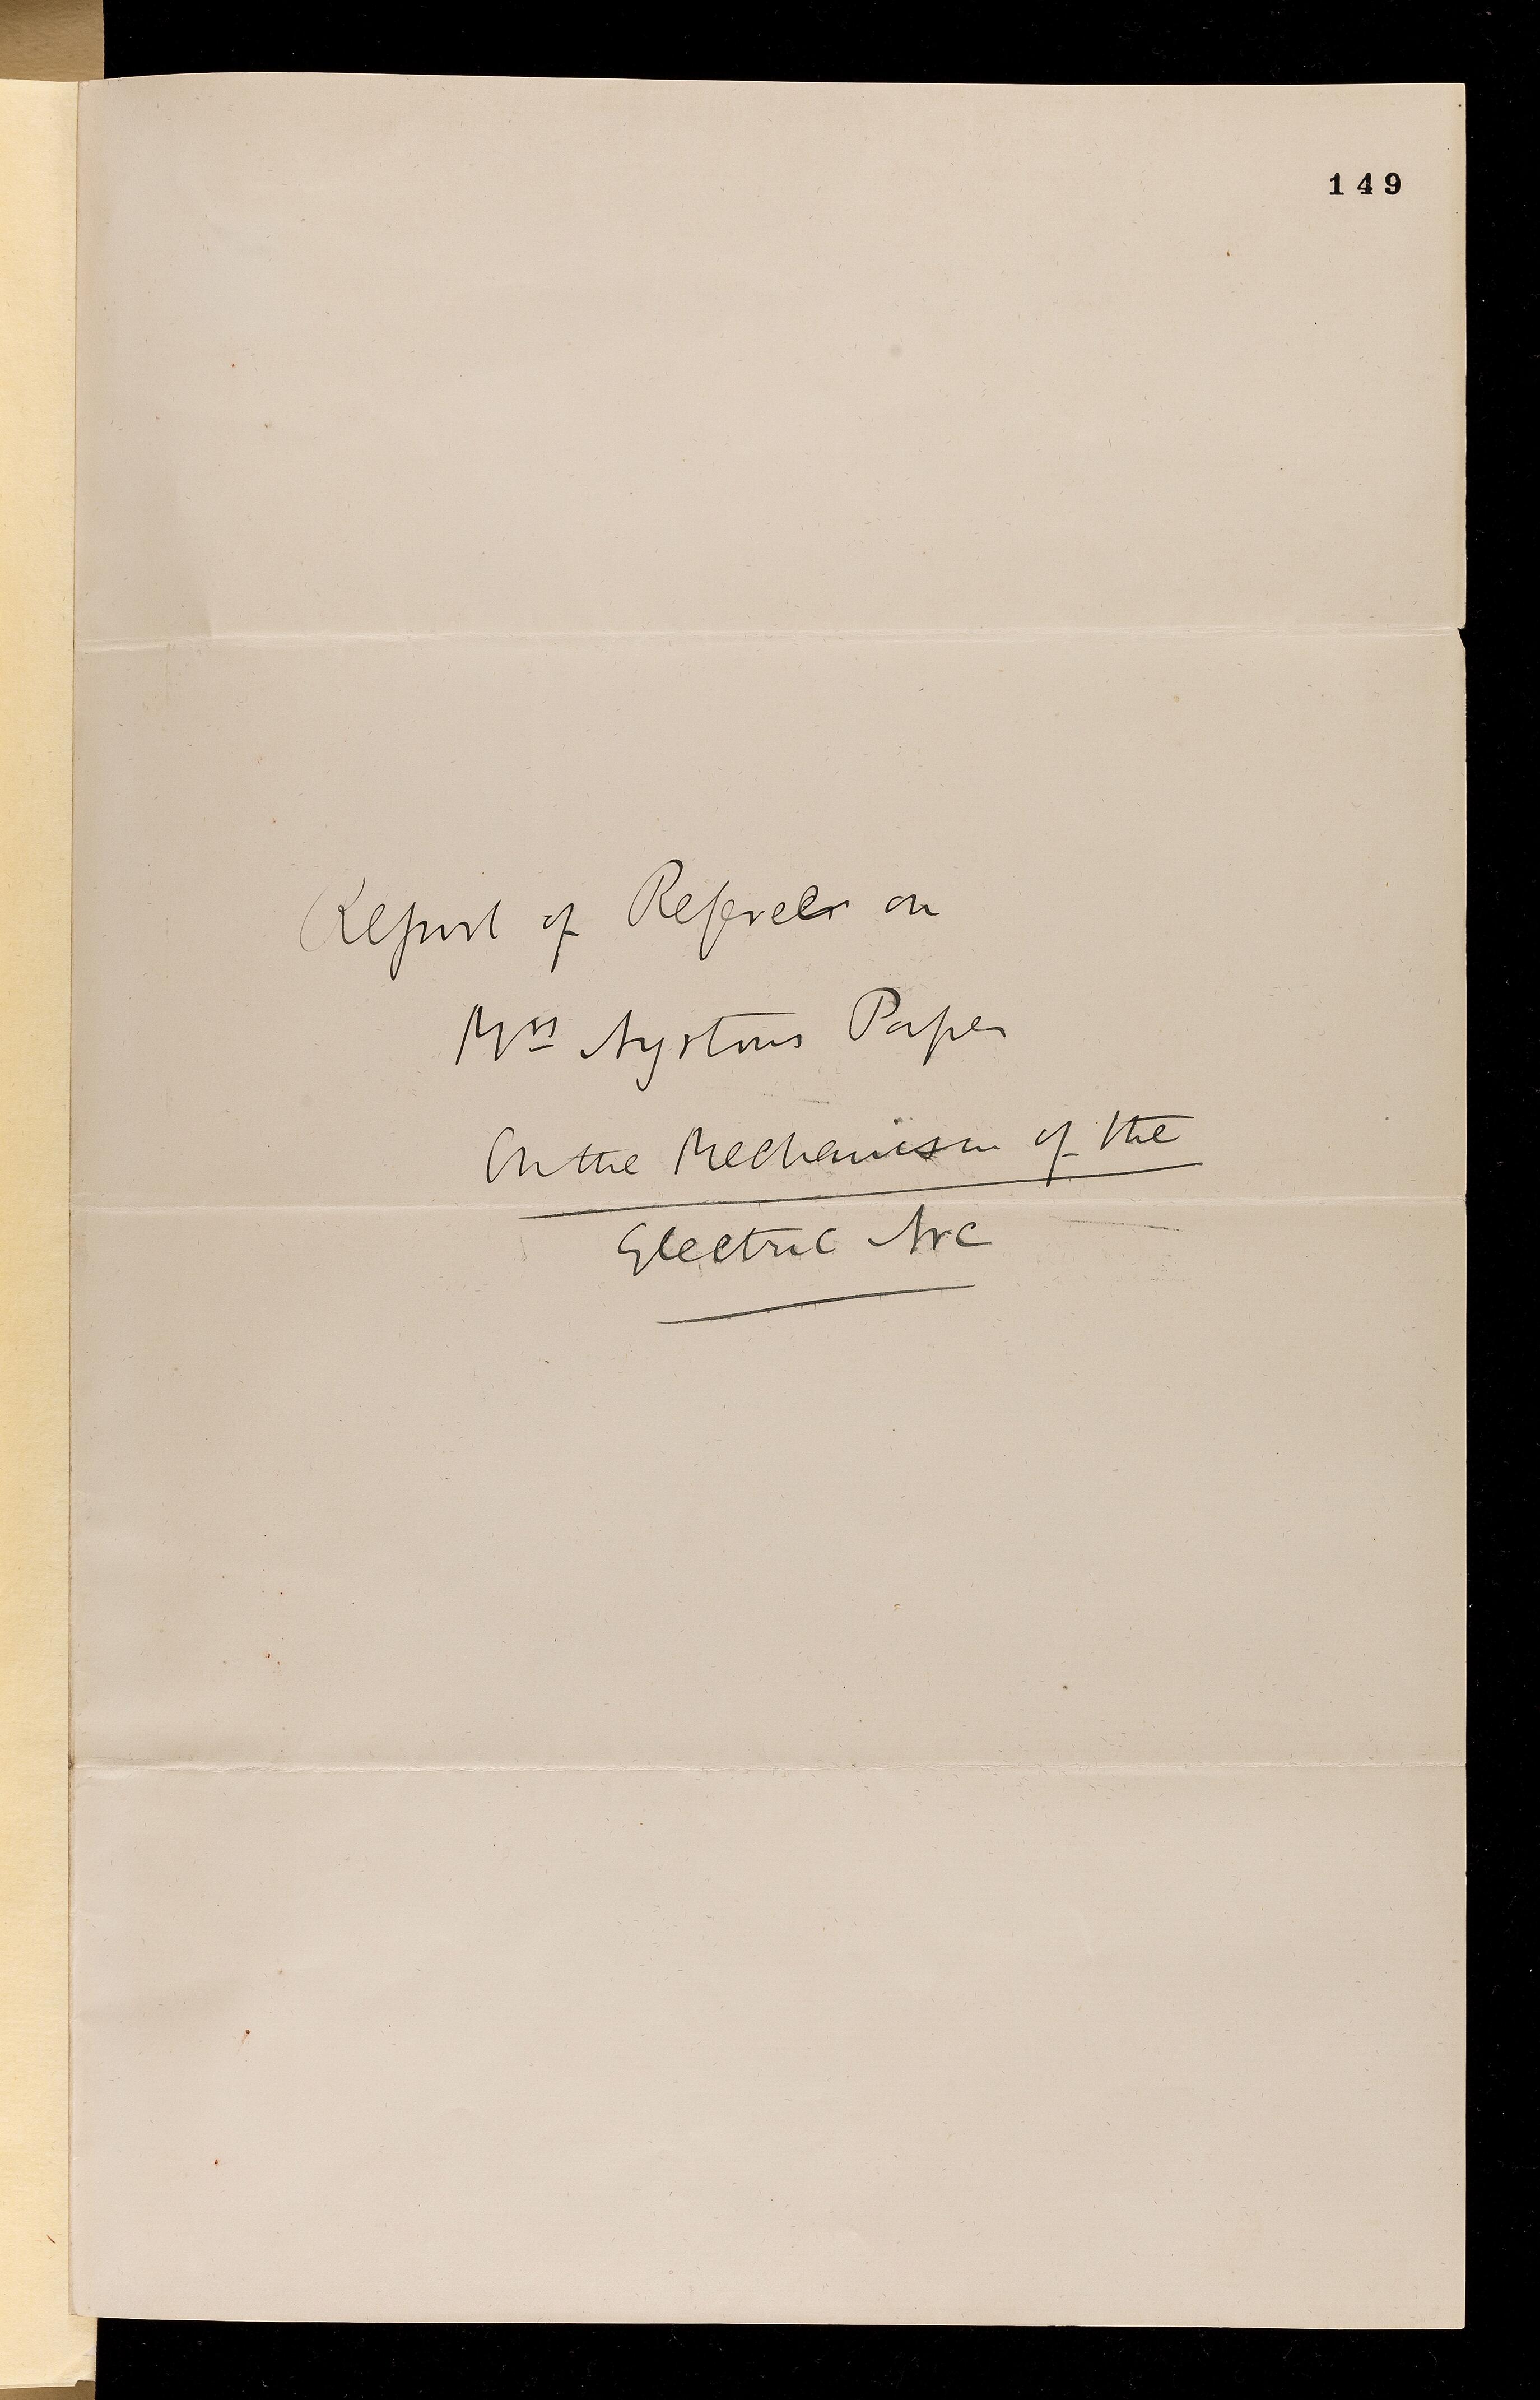 149
Report of Referees on
Mrs Ayrtons Paper
On the Mechanism of the
Electric Arc